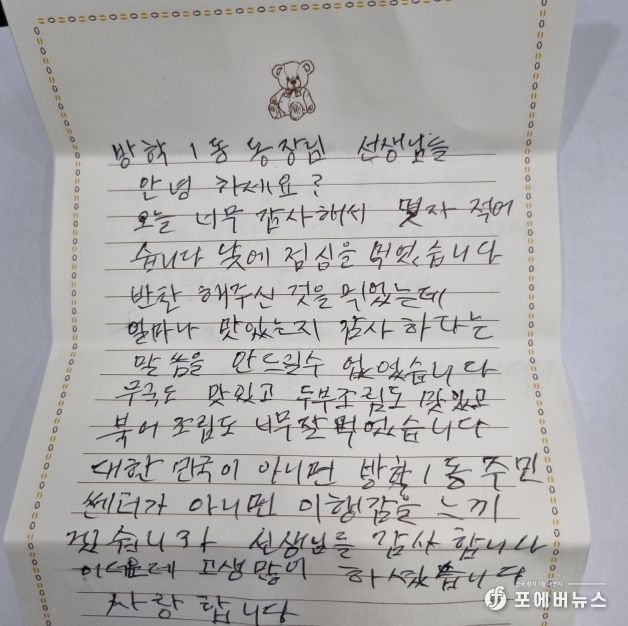 방학 1동 동장님 선생님들
안녕 하세요?
오늘 너무 감사해서 몇자 적어
습니다 낮에 점심을 먹었습니다
반찬 해주신 것을 먹었는데
얼마나 맛있는지 감사 하다는
말씀을 안드릴수 없었습니다
무국도 맛있고 두부조림도 맛있고
북어 조림도 너무잘 먹었습니다
대한 민국이 아니면 방학1동 주민
쎈터가 아니면 이행감을 느끼
겠습니까 선생님들 감사 합니다
이더운데 고생많이 하셨습니다
사랑 합니다
포에버뉴스